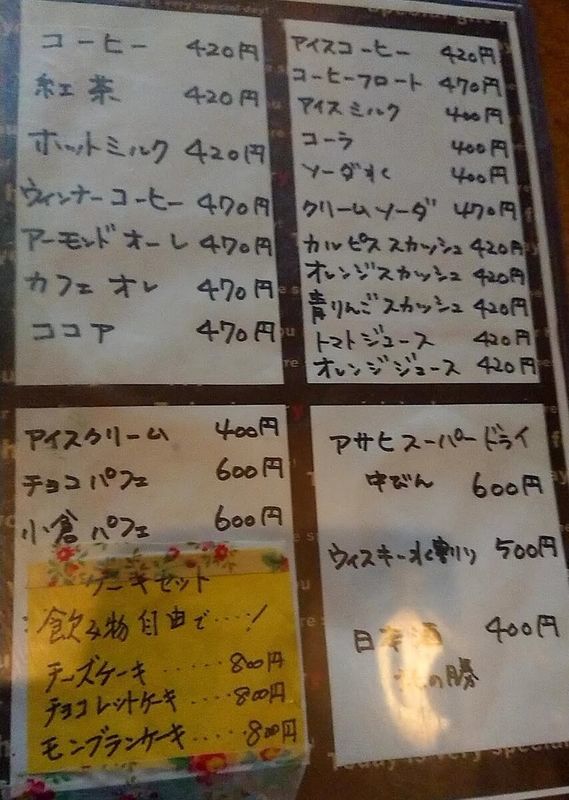 ing is very special day!
コーヒー 420円
紅茶 420円
ホットミルク 420円
ウィンナーコーヒー 470円
アーモンドオーレ 470円
カフェオレ 470円
ココア 470円
アイスコーヒー 420円
コーヒーフロート 470円
アイスミルク 400円
コーラ 400円
ソーダ水 400円
クリームソーダ 470円
カルピススカッシュ 420円
オレンジスカッシュ 420円
青りんごスカッシュ 420円
トマトジュース 420円
オレンジジュース 420円
アイスクリーム 400円
チョコパフェ 600円
小倉パフェ 600円
ケーキセット
飲み物自由で····!
チーズケーキ ····· 800円
チョコレットケーキ ···· 800円
モンブランケーキ ····· 800円
アサヒスーパードライ
中びん 600円
ウィスキー水割り 500円
日本酒 400円
の勝
Today is very special